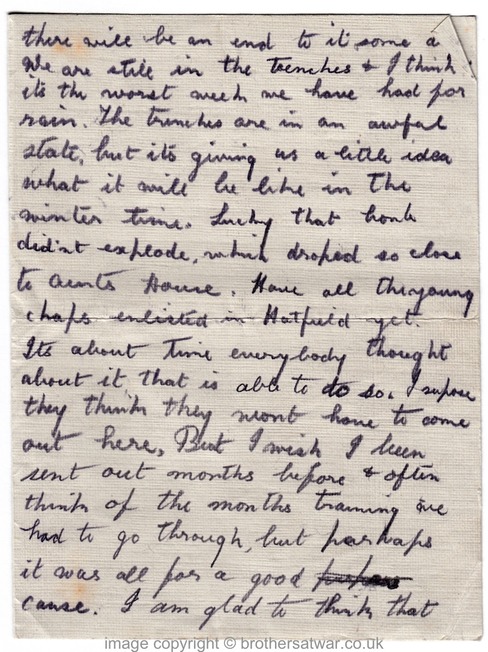 there will be an end to it some a
We are still in the trenches & I think
its the worst week we have had for
rain. The trenches are in an awful
state, but its giving us a little idea
what it will be like in the
winter time. Lucky that bomb
did'nt explode, which droped so close
to aunts House. Have all the young
chaps enlisted in Hatfield yet.
Its about Time everybody thought
about it that is able to do so. I supose
they think they wont have to come
out here, But I wish I been
sent out months before & often
think of the months training we
had to go through, but perhaps
it was all for a good
cause. I am glad to think that
image copyright © brothersatwar.co.uk